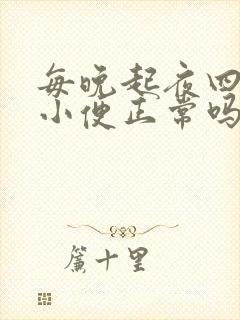 每晚起夜四
小便正常吗
簾十里